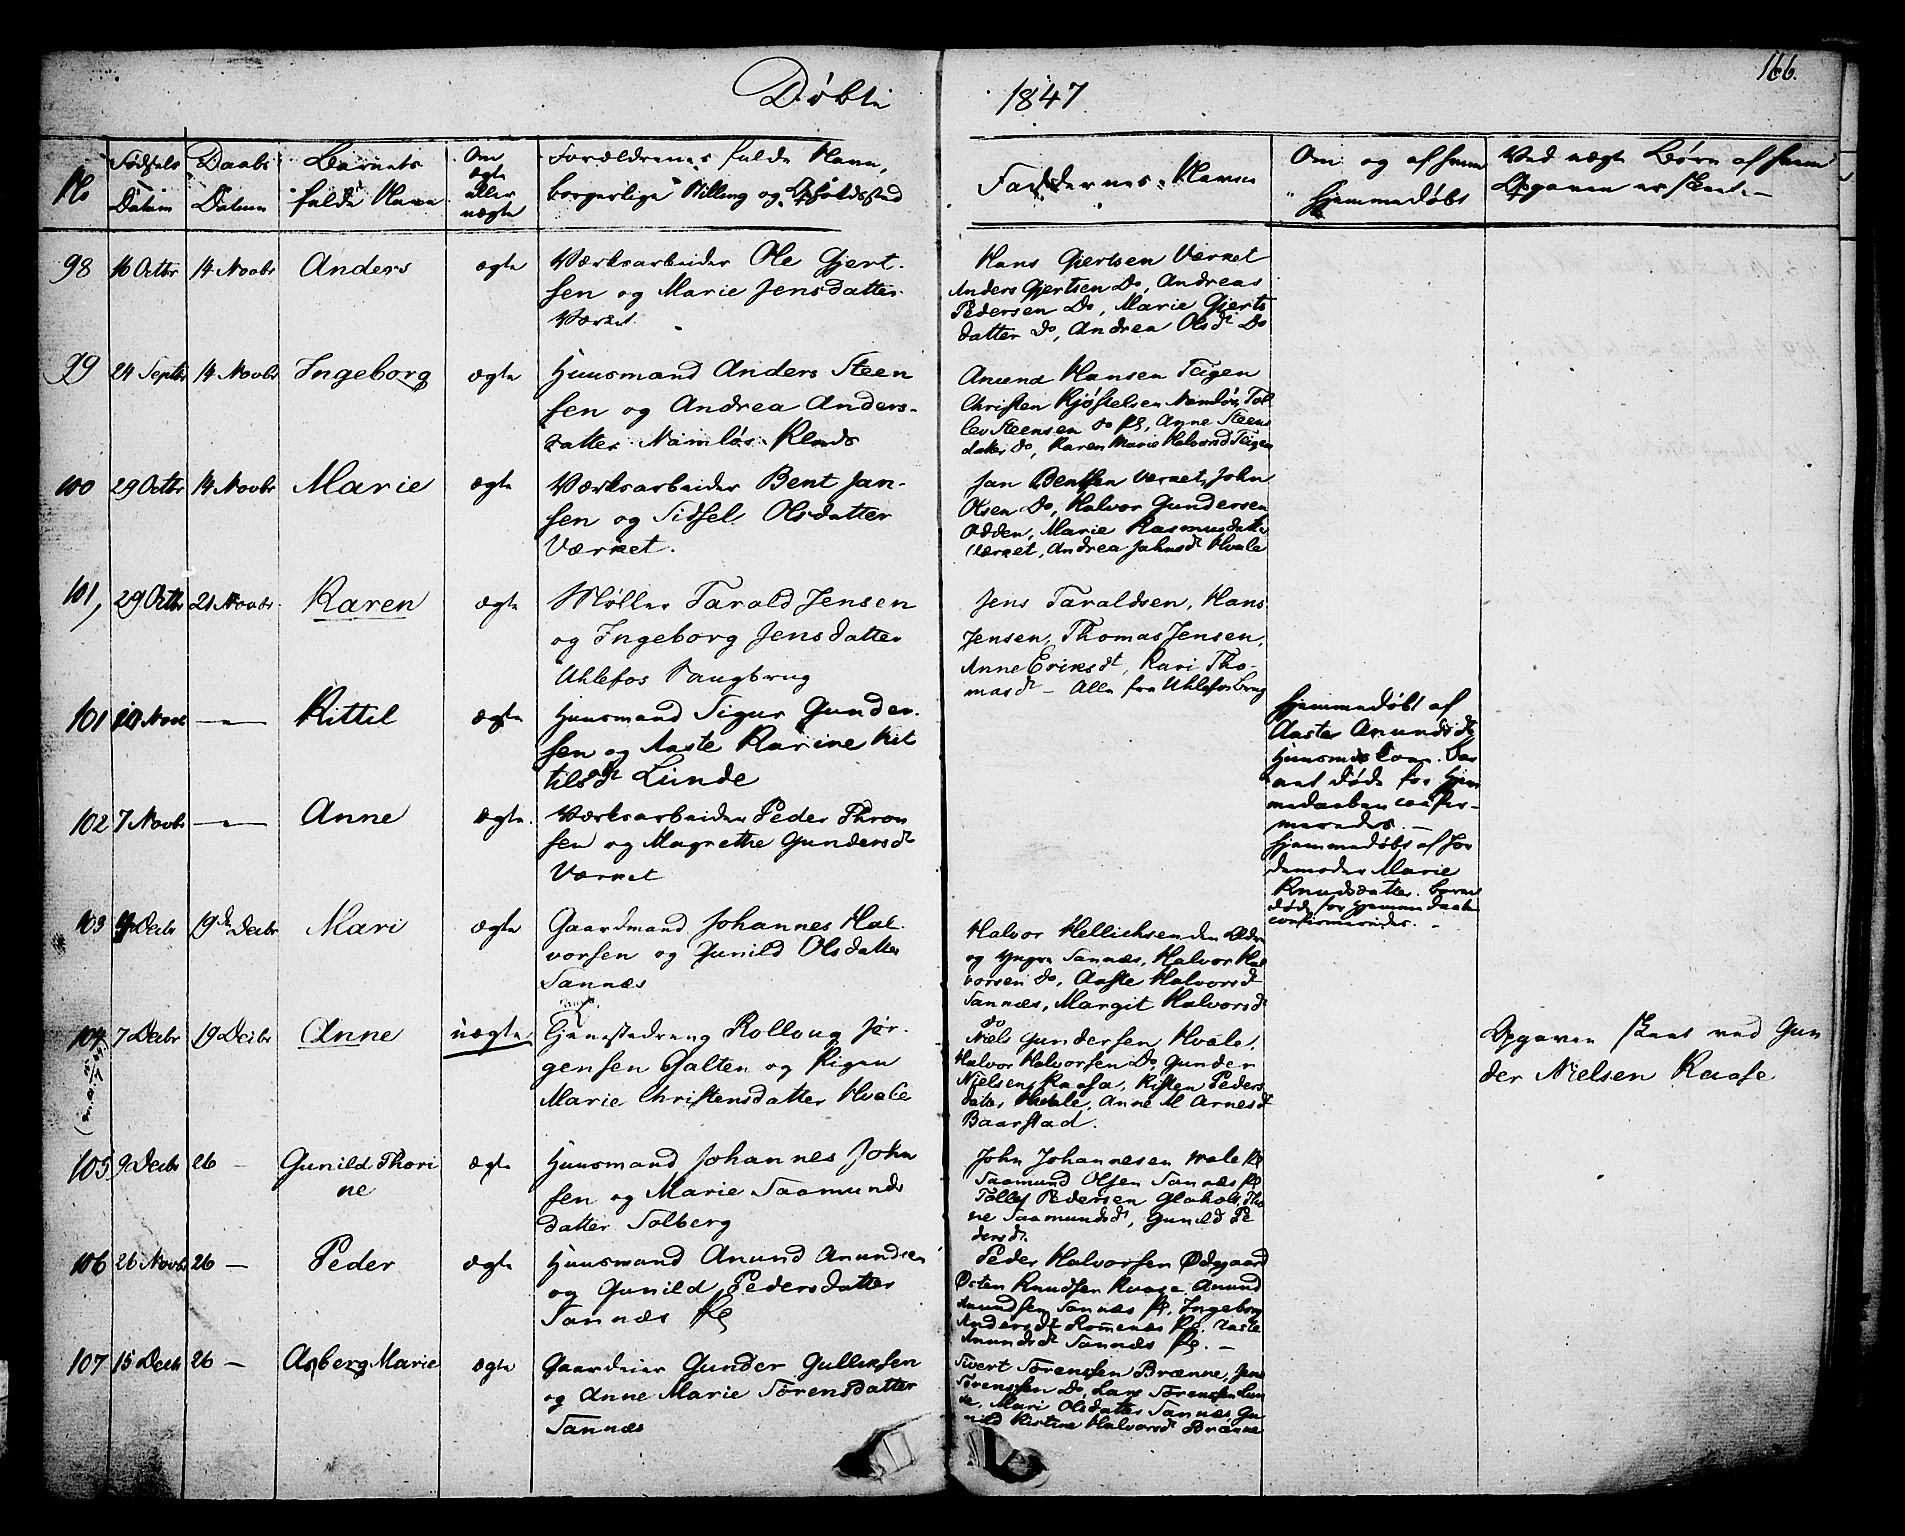 166.
Døbte 1847
No
Fødsels Datum
Daabs Datum
Barnets fulde Navn
Om ægte eller uægte
Forældrenes fulde Navn, borgerlige Stilling og Opholdssted
Faddernes Navne
Om og af hvem hjemmedøbt
Ved uægte Børn af hvem Opgaven er skeet.
98 16 Octbr 14 Novbr Anders ægte Værksarbeider Ole Gjert-
sen og Marie Jensdatter
Værket
Hans Gjertsen Værket
Anders Gjertsen Do, Andreas
Pedersen Do, Marie Gjerts
datter Do, Andrea Olsdt Do
99 24 Septbr 14 Novbr Ingeborg ægte Huusmand Anders Steen
sen og Andrea Anders-
datter Namløs
Anund Hansen Teigen
Christen Kjøstelsen Namløs, Tol
lev Steensen do, Anne Steens
datter do, Karen Marie Halvorsd Teigen
100 29 Octbr 14 Novbr Marie ægte Værksarbeider Bent Jan-
sen og Sidsel Olsdatter
Værket.
Jan Bentsen Værket, John
Olsen Do, Halvor Gundersen
Odden, Marie Rasmusdatter
Værket, Andrea Jahnsdt Hvale
101, 29 Octbr 21 Novbr Karen ægte Møller Tarald Jensen
og Ingeborg Jensdatter
Uhlefos Saugbrug
Jens Taraldsen, Hans
Jensen, Thomas Jensen,
Anne Eriksdt, Kari Tho-
masdt - Alle fra Uhlefos brug
101 20 Novbr —„— Kittil ægte Huusmand Sigur Gunder-
sen og Aaste Karine Kit
tilsdt Lunde
Hjemmedøbt af
Aaste Anundsdt
Huusmds Kone. Bar
net døde før Hjem
medaaben confir-
meredes. —
102 7 Novbr —„— Anne ægte. Værksarbeider Peder Thron
sen og Magrethe Gundersdt
Værket
Hjemmedøbt af Jor
demoder Marie
Knudsdatter. Barnet
døde før Hjemmedaaben
confirmeredes. -
103 Decbr 19de Decbr Mari ægte Gaardmand Johannes Hal
vorsen og Gunild Olsdatter
Sannæs
Halvor Hellichsen den Ældre
og Yngre Sannæs, Halvor Hal
vorsen do, Aaste Halvorsd
Sannæs, Margit Halvorsdt
do
104 7 Decbr 19 Decbr Anne uægte. Tjenestedreng Rolloug Jør-
gensen Galten og Pigen
Marie Christensdatter Hvale
Niels Gundersen Hvale,
Halvor Halvorsen Do, Gunder
Nielsen Kaasa, Kisten Peders
datter Hvale, Anne M Arnesdt
Baarstad.
Opgaven skeet ved Gun
der Nielsen Kaase
105 9 Decbr 26 — Gunild Thori
ne ægte Huusmand Johannes John
sen og Marie Saamunds
datter Solberg
John Johannesen
Saamund Olsen Sannæs
Tollef Pedersen Tho
ne Saamundsdt, Gunild Pe
dersdt.
106 26 Novbr 26 — Peder ægte Huusmand Anund Anundsen
og Gunild Pedersdatter
Sannæs
Peder Halvorsen Ødegaard
Østen Knudsen Kaase, Anund
Anundsen Sannæs, Ingeborg
Andersdt Romenæs, Aaste
Anundsdt Sannæs —
107 15 Decbr 26 — Asberg Marie ægte Gaardeier Gunder Gulliksen
og Anne Marie Sörensdatter
Sannæs
Sivert Sörenssen Brænne, Jens
Sörenssen Do, Lars Sörenssen Lun
de, Mari Olsdatter Sannæs, Gu
nild Kistine Halvorsdt Brænne